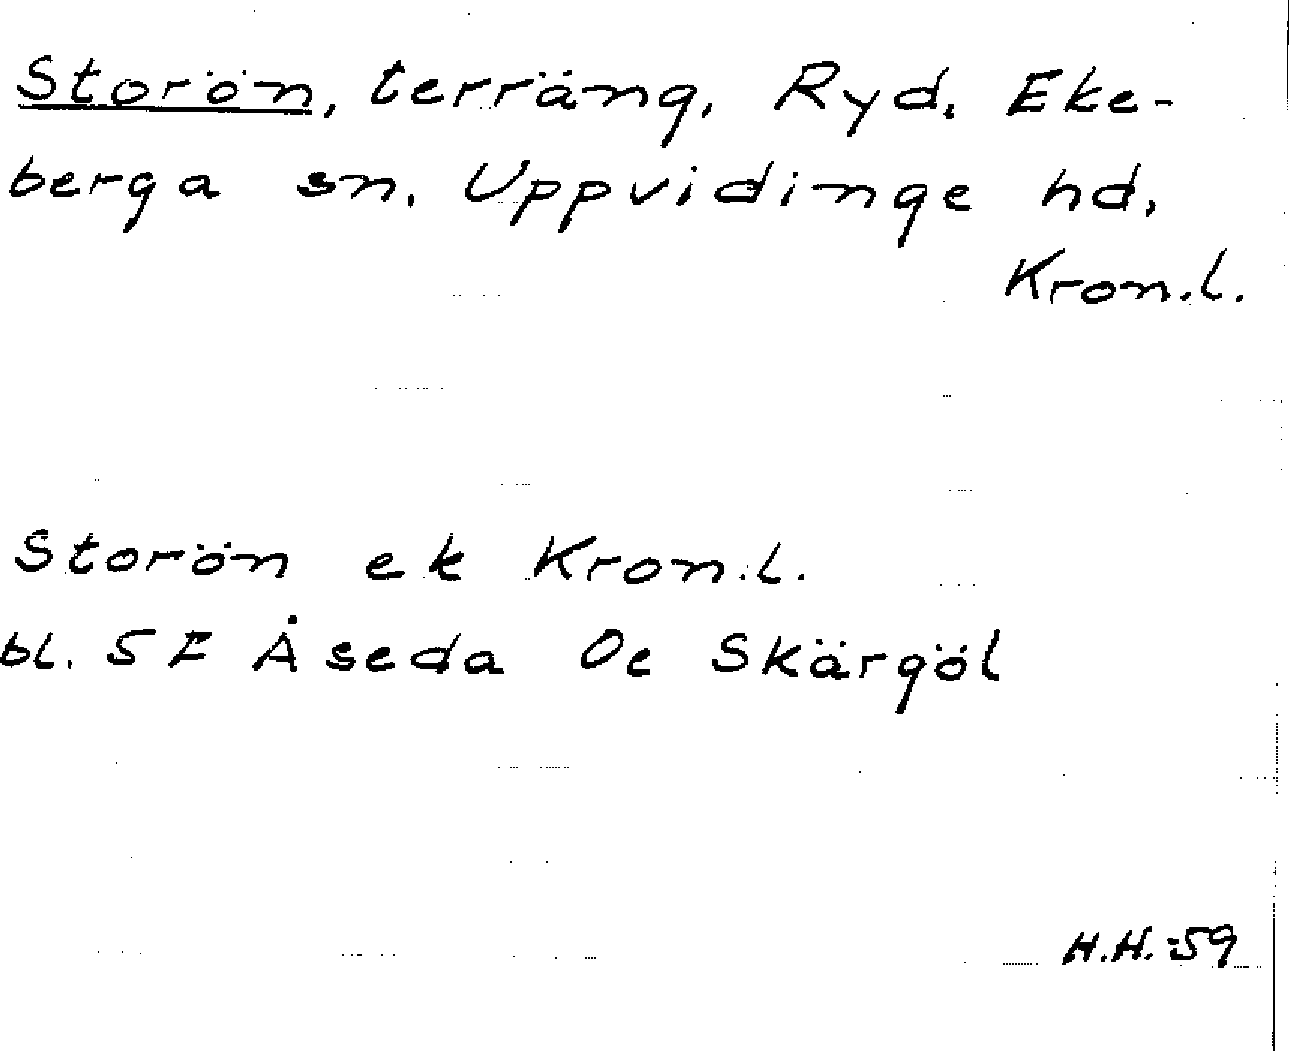 Storön, terräng, Ryd, Eke-
berga sn. Uppvidinge hd,
Kron.l.
Storön ek Kron.l.
bl. 5F Åseda Oe Skärgöl
H.H.-59